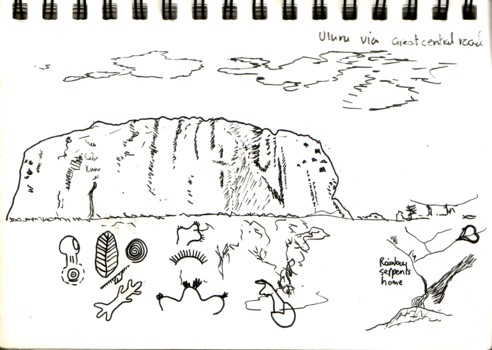 Uluru via Great central road
Rainbow
serpents
home